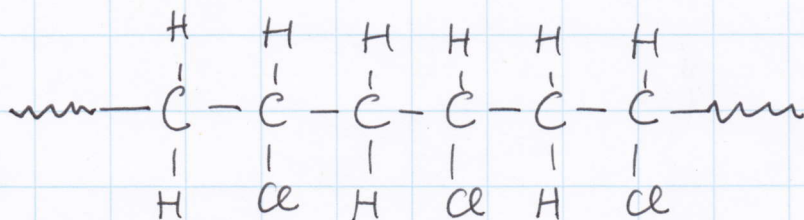 H H H H H H
C - C - C - C - C - C
H Cl H Cl H Cl